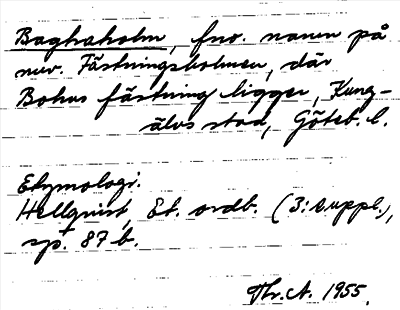 Baghaholm, fnv. namn på
nuv. Fästningsholmen, där
Bohus fästning ligger, Kung-
älvs stad, Göteb. l.
Etymologi.
Hellquist, Et. ordb. (3: suppl.),
sp. 87 b.
Thr. A. 1955.